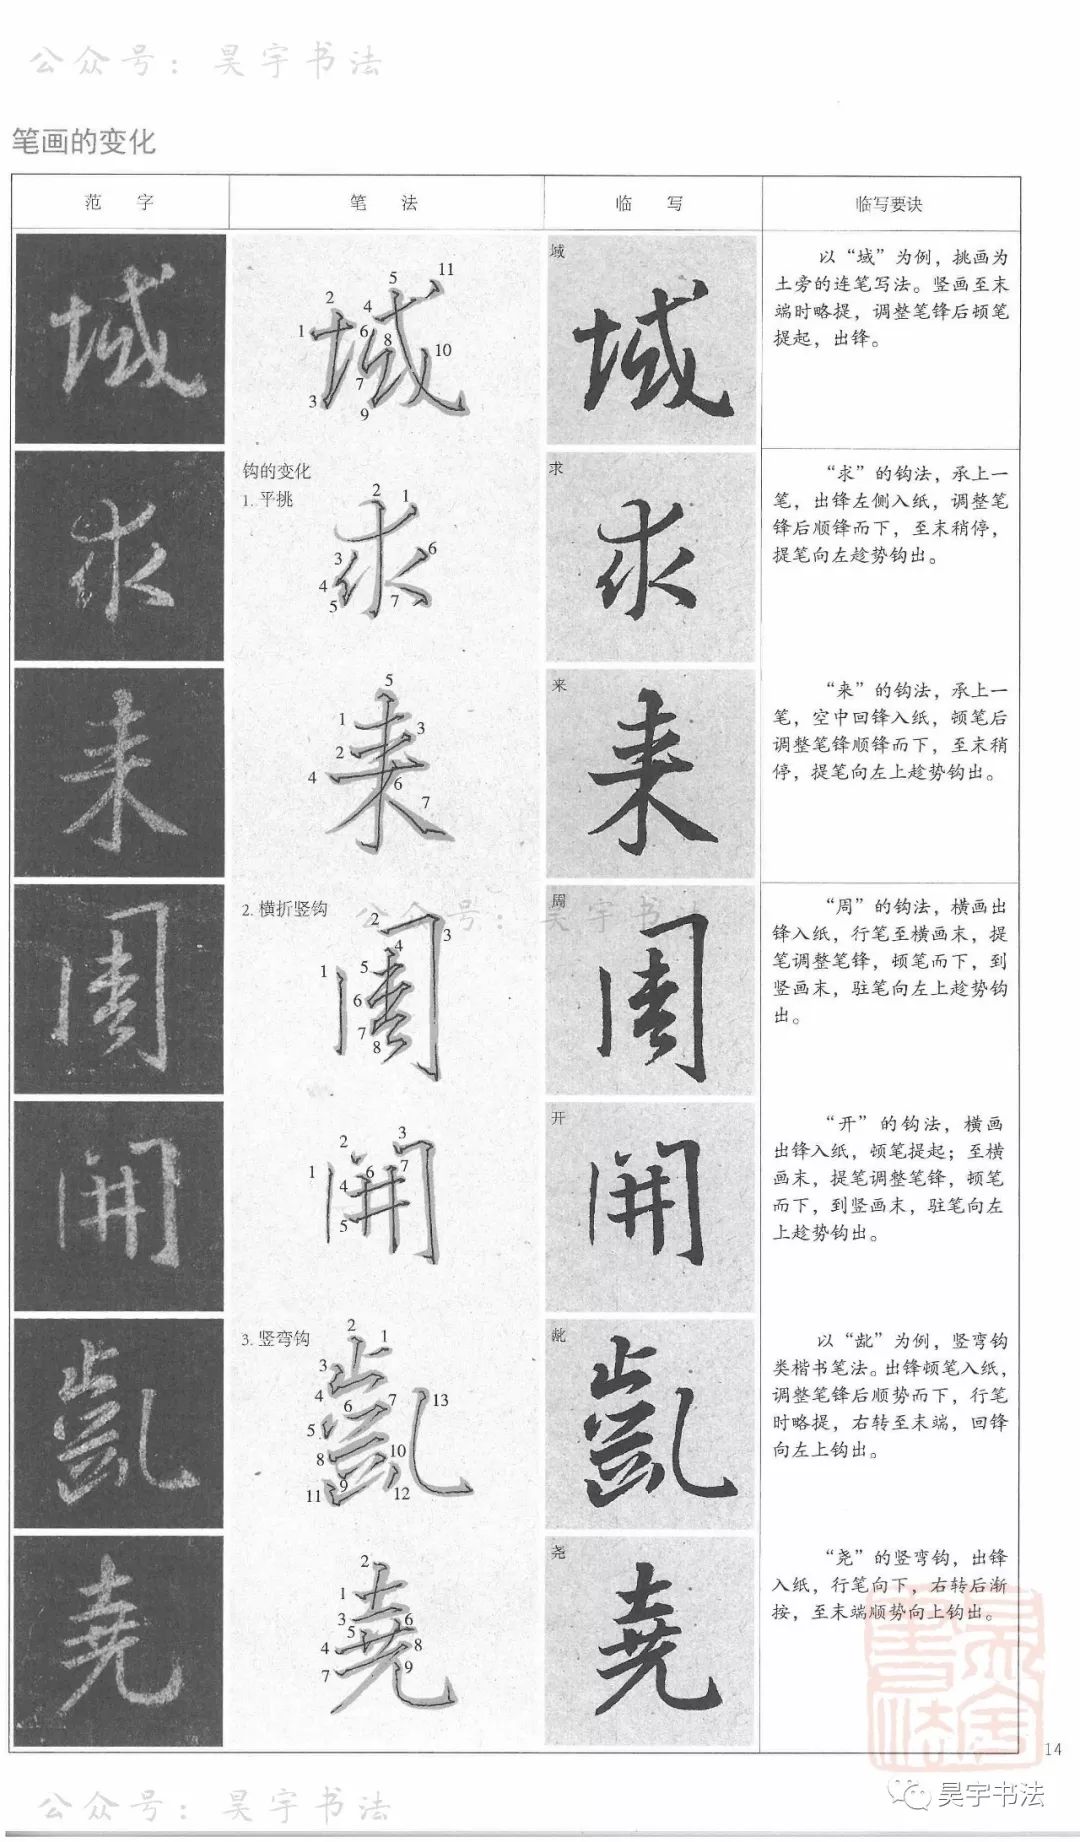 公众号：昊宇书法
笔画的变化
范 字
笔 法
临 写
临写要诀
域
域
1
2
3
4
5
6
7
8
9
10
11
域
域
以“域”为例，挑画为
土旁的连笔写法。竖画至末
端时略提，调整笔锋后顿笔
提起，出锋。
求
钩的变化
1. 平挑
求
1
2
3
4
5
6
7
求
求
“求”的钩法，承上一
笔，出锋左侧入纸，调整笔
锋后顺锋而下，至末稍停，
提笔向左趁势钩出。
来
来
1
2
3
4
5
6
7
来
来
“来”的钩法，承上一
笔，空中回锋入纸，顿笔后
调整笔锋顺锋而下，至末稍
停，提笔向左上趁势钩出。
周
2. 横折竖钩
公众号：昊宇书法
周
1
2
3
4
5
6
7
8
周
周
“周”的钩法，横画出
锋入纸，行笔至横画末，提
笔调整笔锋，顿笔而下，到
竖画末，驻笔向左上趁势钩
出。
開
開
1
2
3
4
5
6
7
开
開
“开”的钩法，横画
出锋入纸，顿笔提起；至横
画末，提笔调整笔锋，顿笔
而下，到竖画末，驻笔向左
上趁势钩出。
3. 竖弯钩
1
2
3
4
5
6
7
8
9
10
11
12
13
龀
以“龀”为例，竖弯钩
类楷书笔法。出锋顿笔入纸，
调整笔锋后顺势而下，行笔
时略提，右转至末端，回锋
向左上钩出。
堯
堯
1
2
3
4
5
6
7
8
9
尧
堯
“尧”的竖弯钩，出锋
入纸，行笔向下，右转后渐
按，至末端顺势向上钩出。
昊宇書法
14
昊宇书法
公众号：昊宇书法